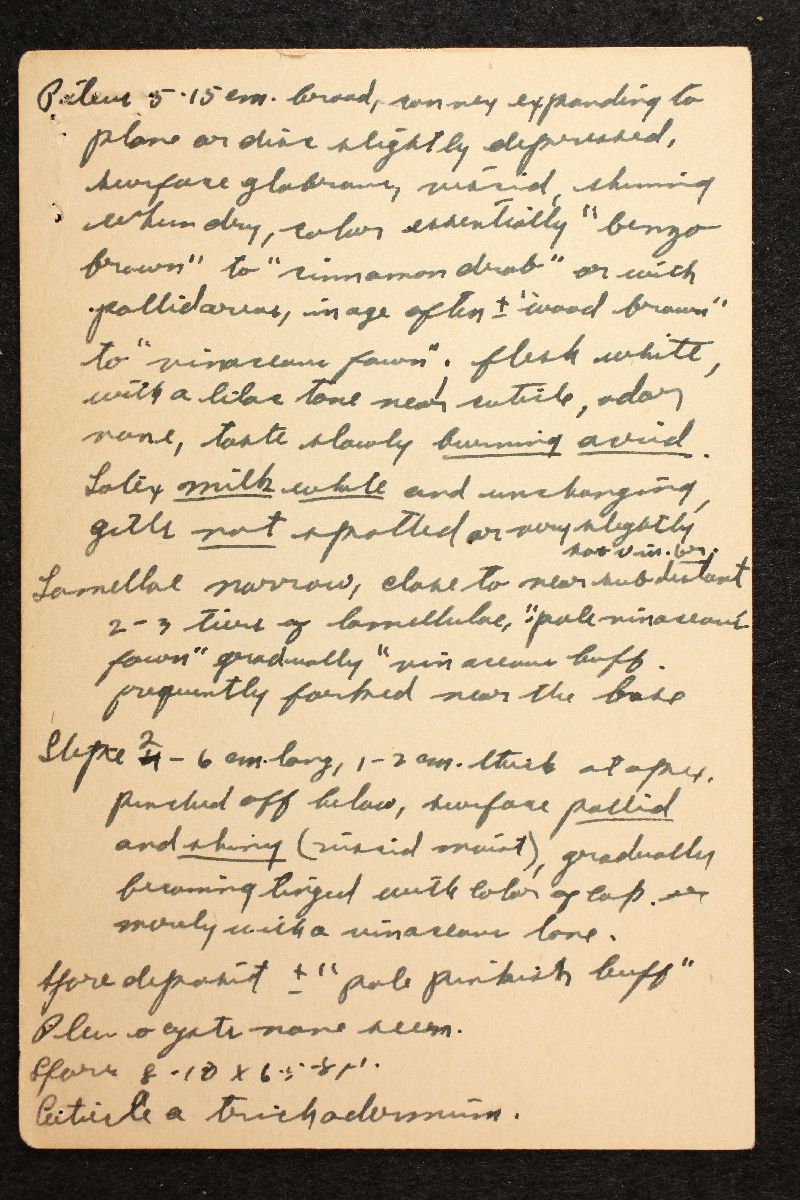 Pileus 5-15 cm. broad, convex expanding to
plane or disc slightly depressed,
surface glabrous, viscid, shining
when dry, color essentially "benzo
brown" to "cinnamon drab" or with
pallid areas, in age often ± "wood brown"
to "vinaceous fawn"; flesh white,
with a lilac tone near cuticle, odor
none, taste slowly burning acrid.
Latex milk white and unchanging,
gills not spotted or very slightly
so vin. br.
Lamellae narrow, close to near subdistant
2-3 tiers of lamellulae, "pale vinaceous
fawn" gradually "vinaceous buff.
frequently forked near the base
Stipe 2 - 6 cm. long, 1-2 cm. thick at apex.
pinched off below, surface pallid
and shiny (viscid moist), gradually
becoming tinged with color of cap. or
merely with a vinaceous tone.
Spore deposit ± "pale pinkish buff"
Pleurocysts none seen.
Spores 8-10 x 6.5-8 µ.
Cuticle a trichodermium.